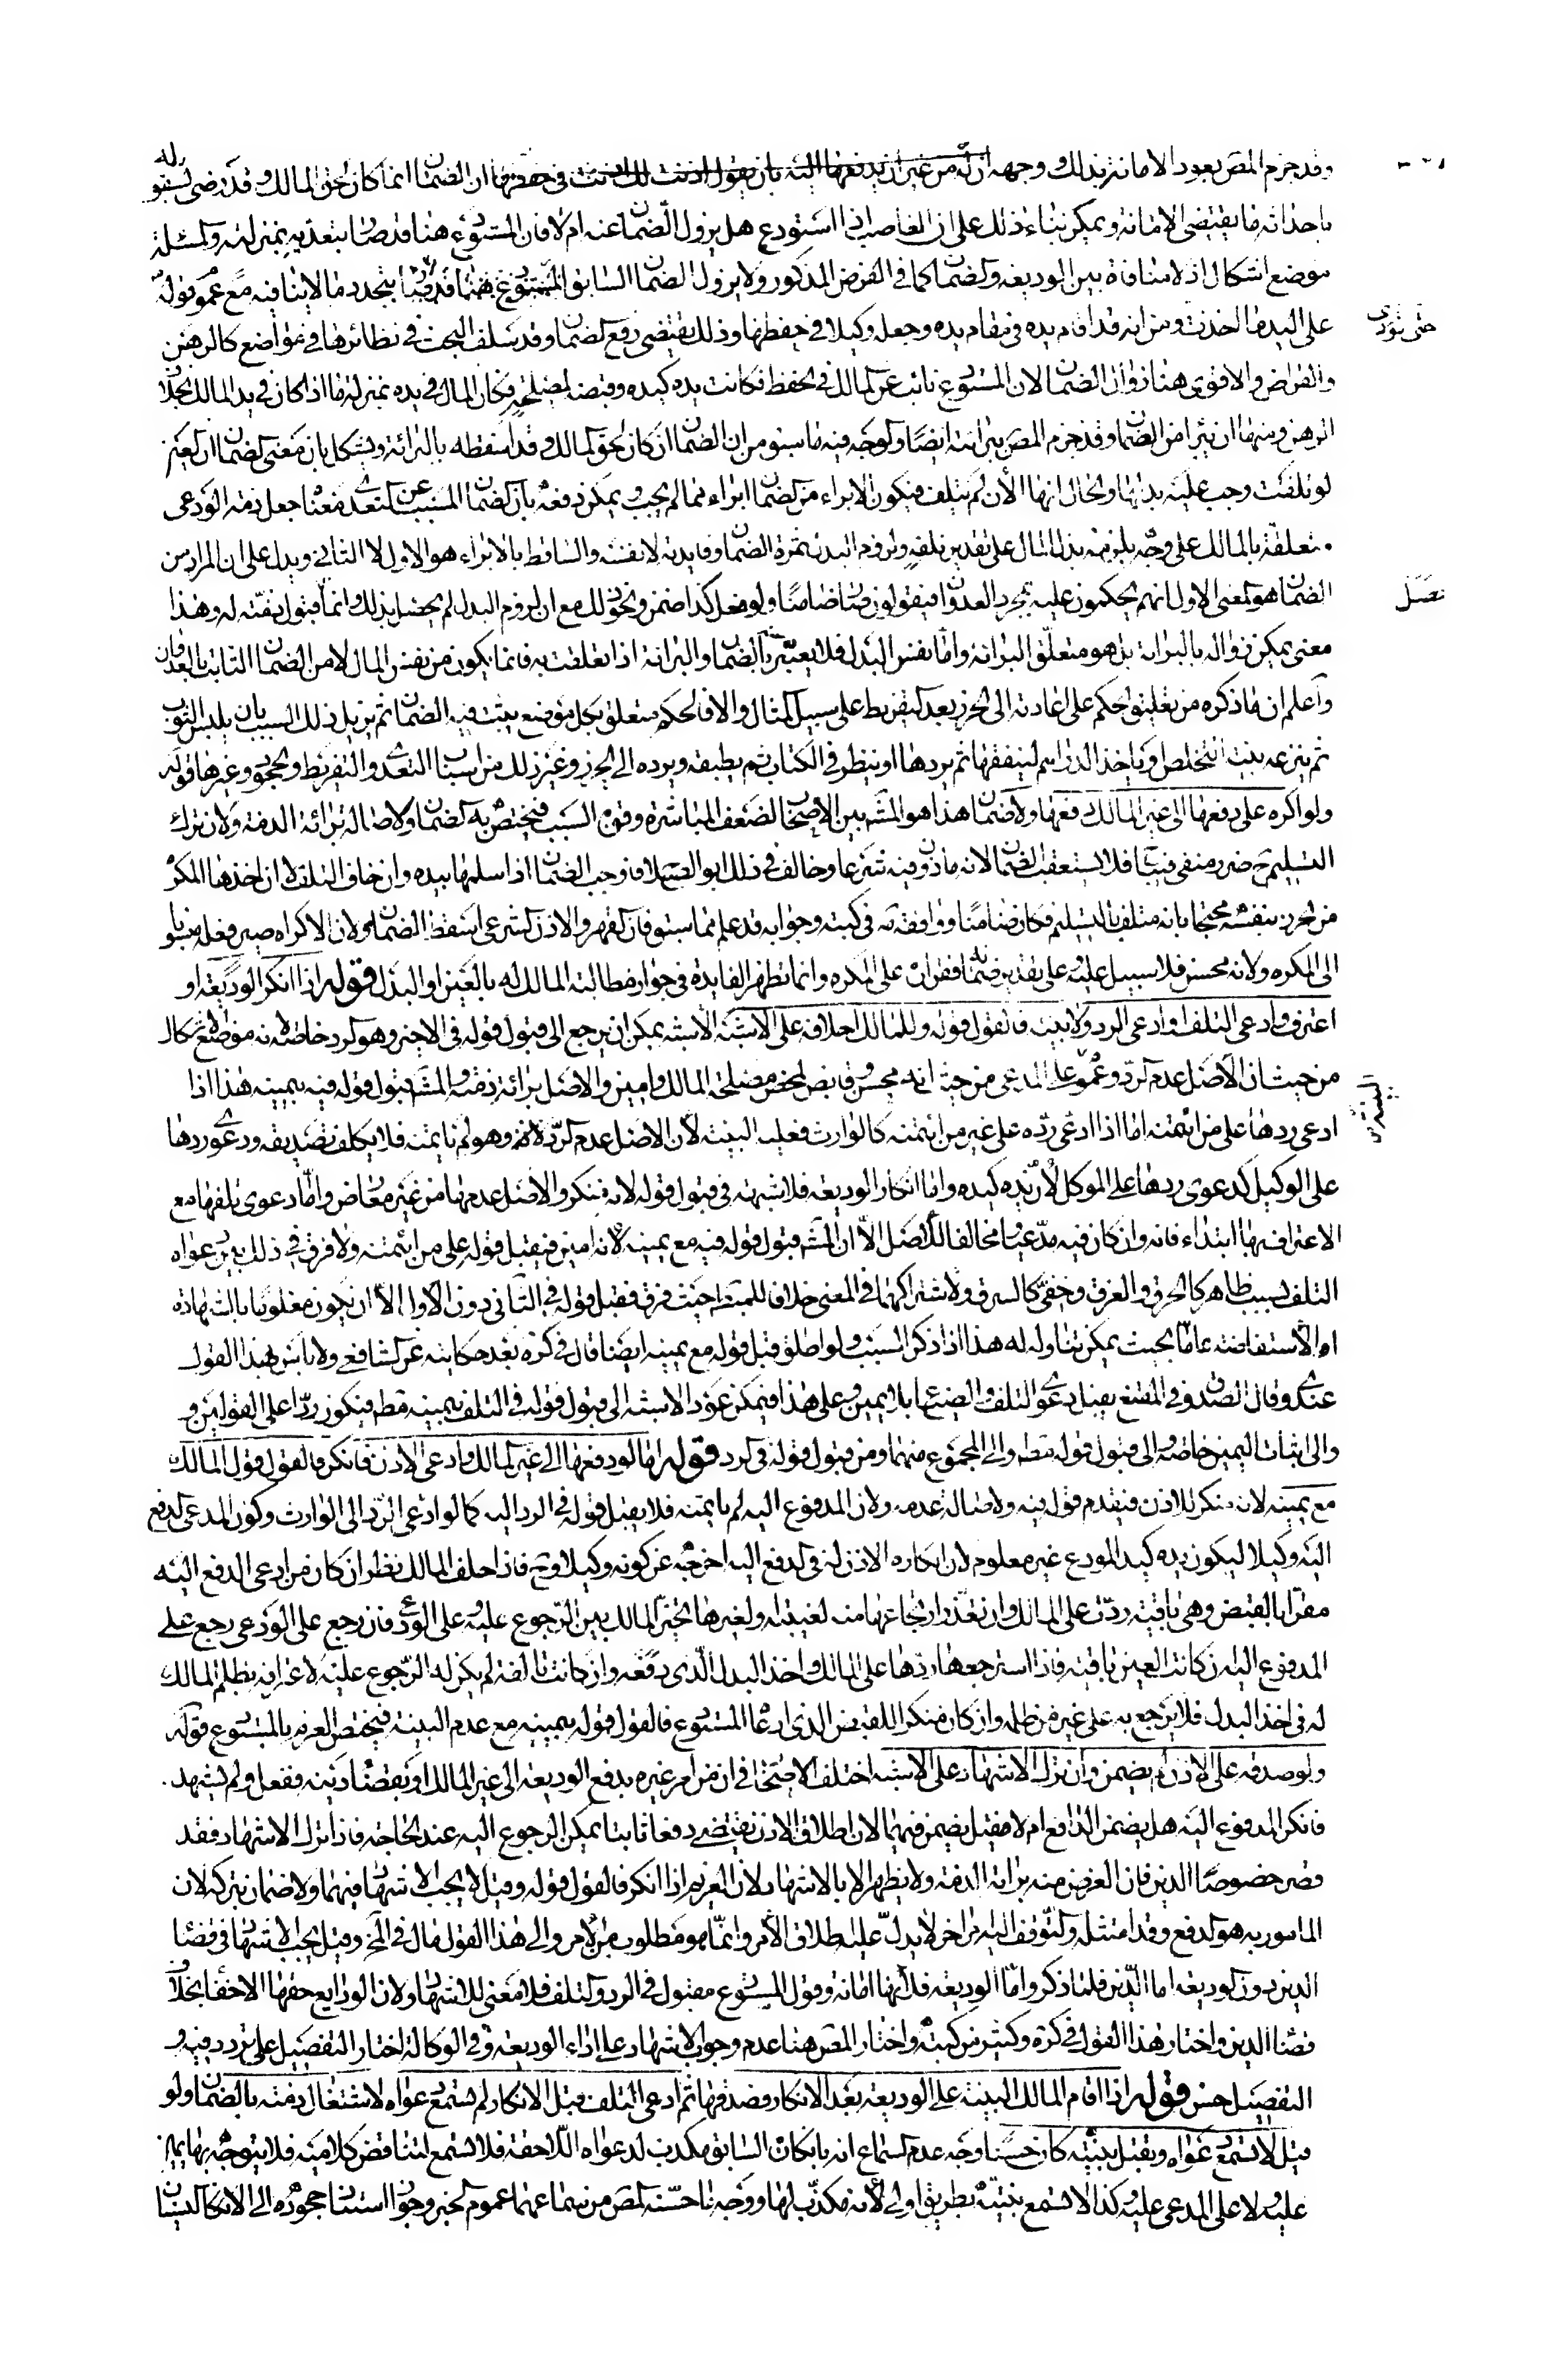 وقد جزم المص بعود الامانة بذلك ووجهه ان الضمان انما كان لحق المالك وقد رضي بسقوطه
باحداثه ما يقتضي الامانة ويمكن بناء ذلك على ان الغاصب اذا استودع هل يزول الضمان عنه ام لا فان المستودع هنا قد صار بتعديه بمنزلته والمسئلة
موضع اشكال اذ لا منافاة بين الوديعة والضمان كما في الفرض المذكور ولا يزول الضمان السابق بتجدد ما لا ينافيه مع عموم قوله
على اليد ما اخذت ومن انه قد اقام يده مقام يده وجعله وكيلا في حفظها وذلك يقتضي رفع الضمان وقد سلف البحث في نظائرها في مواضع كالرهن
حتى تؤدي
والقراض والاقوى هنا زوال الضمان لان المستودع نائب عن المالك في الحفظ فكانت يده كيده وقبضه لمصلحته فكان المال في يده بمنزلة ما اذا كان في يد المالك بخلاف
الرهن ومنها ان يبرئه من الضمان وقد جزم المص ببرائته ايضا والوجه فيه ما سبق من ان الضمان كان لحق المالك وقد اسقطه بالبرائة ويشكل بان معنى الضمان ان العين
لو تلفت وجب عليه بدلها والحال انها الآن لم تتلف فيكون الابراء من الضمان ابراء مما لم يجب ويمكن دفعه بان الضمان المسبب عن التعدي معناه جعل ذمة الودعي
متعلقة بالمالك على وجه يلزمه بذل المال على تقدير تلفه ولزوم البدل ثمرة الضمان وفايدته لا نفسه والساقط بالابراء هو الاول لا الثاني ويدل على ان المراد من
الضمان هو المعنى الاول انهم يحكمون عليه بمجرد العدوان فيقولون صار ضامنا ولو فعل كذا ضمن ونحو ذلك مع ان لزوم البدل لم يحصل بذلك وانما قبول ذمته له وهذا
معنى يمكن زواله بالبرائة بل هو متعلق البرائة واما نفس البدل فلا يعبر عنه بالضمان والبرائة اذا تعلقت به فانما يكون من نفس المال لا من الضمان الثابت بالعدوان
واعلم ان ما ذكره من تعليق الحكم على اعادته الى الحرز بعد التفريط على سبيل المثال والا فالحكم متعلق بكل موضع يثبت فيه الضمان ثم يزيل ذلك السبب بان يلبس الثوب
ثم ينزعه بنية التخلص او ياخذ الدراهم لينفقها ثم يردها او ينظر في الكتاب ثم يطبقه ويرده الى الحرز وغير ذلك من اسباب التعدي والتفريط والجحود وغيرها قوله
ولو اكره على دفعها الى غير المالك دفعها ولا ضمان هذا هو المشهور بين الاصحاب لضعف المباشرة وقوة السبب فيختص به الضمان ولاصالة برائة الذمة ولان ترك
التسليم ح ضرر منفي فيباح فلا يستعقب الضمان لانه ماذون فيه شرعا وخالف في ذلك ابو الصلاح فاوجب الضمان اذا سلمها بيده وان خاف التلف لا ان اخذها المكره
من الحرز بنفسه محتجا بانه متلف بالتسليم فكان ضامنا ووافقه في كتبه وجوابه قد علم مما سبق فان القهر والاذن الشرعي اسقط الضمان ولان الاكراه صير فعله منسوبا
الى المكره ولانه محسن فلا سبيل عليه وعلى تقدير ضمانه فقراره على المكره وانما تظهر الفايدة في جواز مطالبة المالك له بالعين او البدل قوله اذا انكر الوديعة او
اعترف وادعى التلف او ادعى الرد ولا بينة فالقول قوله وللمالك احلافه على الاشبه الاشبه يمكن ان يرجع الى قبول قوله في الاخير وهو الرد خاصة لانه موضع اشكال
من حيث ان الاصل عدم الرد وعموم على المدعي من حيث انه محسن وقابض لمحض مصلحة المالك وامين والاصل برائة ذمته والمشهور قبول قوله فيه بيمينه هذا اذا
البينة
ادعى ردها على من ائتمنه اما اذا ادعى رده على غير من ائتمنه كالوارث فعليه البينة لان الاصل عدم الرد وهو لم ياتمنه فلا يكلف تصديقه ودعوى ردها
على الوكيل كدعوى ردها على الموكل لان يده كيده واما انكار الوديعة فلا شبهة في قبول قوله لانه منكر والاصل عدمها من غير معارض واما دعوى تلفها مع
الاعتراف بها ابتداء فانه وان كان فيه مدعيا مخالفا للاصل الا ان المشهور قبول قوله فيه مع يمينه لانه امين فيقبل قوله على من ائتمنه ولا فرق في ذلك بين دعواه
التلف بسبب ظاهر كالحرق والغرق وخفي كالسرق ولاشتراكهما في المعنى خلافا للمبسوط حيث فرق فقبل قوله في الثاني دون الاول الا ان يكون معلوما بالشهادة
او الاستفاضة عاما بحيث يمكن تناوله له هذا اذا ذكر السبب ولو اطلق قبل قوله مع يمينه ايضا قال في كره بعد حكايته عن الشافعي ولا باس بهذا القول
عندي وقال الصدوق في المقنع يقبل دعوى التلف والضياع بلا يمين وعلى هذا فيمكن عود الاشبه الى قبول قوله في التلف بيمينه فيكون ردا على القولين و
والى اثبات اليمين خاصة والى قبول قوله والى المجموع منهما ومن قبول قوله في الرد قوله اما لو دفعها الى غير المالك وادعى الاذن فانكر فالقول قول المالك
مع يمينه لانه منكر للاذن فيقدم قوله فيه ولاصالة عدمه ولان المدفوع اليه لم ياتمنه فلا يقبل قوله في الرد اليه كما لو ادعى الرد الى الوارث وكون المدعى الدفع
اليه وكيلا ليكون يده كيد المودع غير معلوم لان انكاره الاذن له في الدفع اليه اخرجه عن كونه وكيلا وح فاذا حلف المالك نظر ان كان من ادعى الدفع اليه
مقرا بالقبض وهي باقية ردت على المالك وان تعذر ارتجاعها منه لغيبته او لغيرها تخير المالك بين الرجوع عليه وعلى الودعي فان رجع على الودعي رجع على
المدفوع اليه ان كانت العين باقية فاذا استرجعها ردها على المالك واخذ البدل الذي دفعه وان كانت تالفة لم يكن له الرجوع عليه لاعترافه بظلم المالك
له في اخذ البدل فلا يرجع به على غير من ظلمه وان كان منكرا للقبض الذي ادعاه المستودع فالقول قوله بيمينه مع عدم البينة فيختص الغرم بالمستودع قوله
ولو صدقه على الاذن لم يضمن وان ترك الاشهاد على الاشبه اختلف الاصحاب في ان من امر غيره بدفع الوديعة الى غير المالك او بقضاء دينه ففعل ولم يشهد
فانكر المدفوع اليه هل يضمن الدافع ام لا فقيل يضمن فيهما لان اطلاق الاذن يقتضي دفعا ثابتا يمكن الرجوع اليه عند الحاجة فاذا ترك الاشهاد فقد
قصر خصوصا الدين فان الغرض منه برائة الذمة ولا يظهر الا بالاشهاد لان الغريم اذا انكر فالقول قوله وقيل لا يجب الاشهاد فيهما ولا ضمان بتركه لان
المامور به هو الدفع وقد امتثله والتوقف اليه امر اخر لا يدل عليه اطلاق الامر وانما هو مطلوب من الامر والى هذا القول مال في الخ وقيل يجب الاشهاد في قضاء
الدين دون الوديعة اما الدين فلما ذكر واما الوديعة فلانها امانة وقول المستودع مقبول في الرد والتلف فلا معنى للاشهاد ولان الودايع حقها الاخفاء بخلاف
قضاء الدين واختار هذا القول في كره وكثير من كتبه واختار المص هنا عدم وجوب الاشهاد على اداء الوديعة وفي الوكالة اختار التفصيل على تردد فيه و
التفصيل حسن قوله اذا اقام المالك البينة على الوديعة بعد الانكار فصدقها ثم ادعى التلف قبل الانكار لم تسمع دعواه لاشتغال ذمته بالضمان ولو
قيل تسمع دعواه ويقبل بينته كان حسنا وجه عدم السماع انه بانكاره السابق مكذب لدعواه اللاحقة فلا تسمع لتناقض كلاميه فلا يتوجه بها يمين
عليه ولا على المدعى عليه وكذا لا تسمع بينته بطريق اولى لانه مكذب لها ووجه ما حسنه المص من سماعها عموم الخبر وجواز استناد جحوده الى النسيان